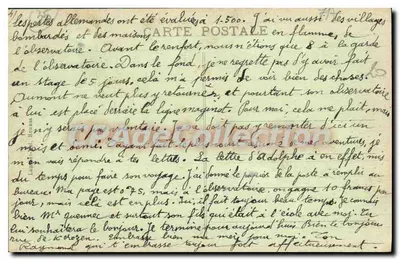 les pertes allemandes ont été évaluées à 1.500. J'ai vu aussi des villages
bombardés et des maisons en flammes, de
CARTE POSTALE
l'observatoire. Avant le renfort, nous n'étions que 8 à la garde
de l'observatoire. Dans le fond, je ne regrette pas d'y avoir fait
un stage de 5 jours, cela m'a permis de voir bien des choses.
Aumont ne veut plus y retourner, et pourtant son observatoire
à lui est placé derrière la ligne maginot. Pour moi, cela ne plait, mais
je n'y serai pas remonter d'ici un
EPRADECollection
mois et demi. aventures, je
m'en vais répondre à tes lettres. La lettre d'Adolphe a en effet, mis
du temps pour faire son voyage. J'ai donné le papier de la poste à remplir au
bureau. Ma paye est 0,75, mais à l'observatoire, on gagne 10 francs par
jour, mais elle est en plus. Ici, il fait toujours beau temps. Je connais
bien Mr et surtout son fils qui était à l'école avec moi. Tu
lui souhaitera le bonjour. Je termine pour aujourd'hui. Bien le bonjour
rue de Embrasse bien ma pour moi. Ton
Raymond qui t'embrasse toujours fort affectueusement.